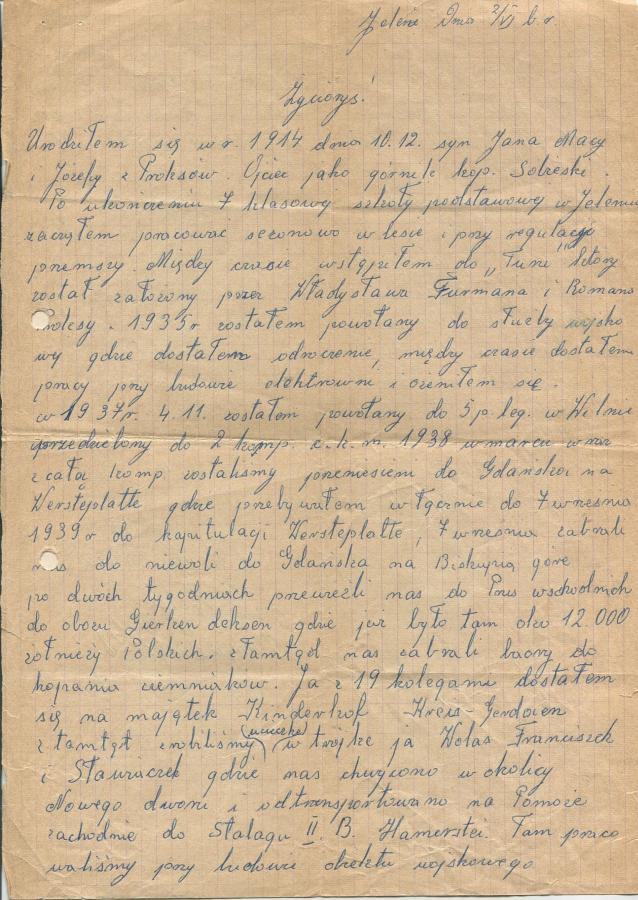 Jeleń Dnia 2/VI b.r.
Życiorys!
Urodziłem się w r. 1914 dnia 10.12. syn Jana Macy
i Józefy z Proksów. Ojciec jako górnik kop. Sobieski.
Po ukończeniu 7 klasowy szkoły podstawowy w Jeleniu
zacząłem pracować sezonowo w lesie i przy regulacji
przemszy. Między czasie wstąpiłem do „Turu" który
został założony przez Władysława Furmana i Romana
1935 r zostałem powołany do służby wojsko
wy gdzie dostałem odroczenie, między czasie dostałem
pracy przy budowie elektrowni i ożeniłem się.
w 1937r. 4.11. zostałem powołany do 5 p. leg. w Wilnie
przedzielony do 2 komp. c.k.m. 1938 w marcu wraz
z całą komp zostaliśmy przeniesieni do Gdańska na
Wersteplatte gdzie przebywałem włącznie do 7 wresnia
1939 r do kapitulacji Wersteplatte, 7 wresnia zabrali
nas do niewoli do Gdańska na Biskupią górę
po dwóch tygodniach przewieźli nas do Prus wschodnich
do obozu Gierken deksen gdzie już było tam oko 12.000
żołnieży Polskich. ztamtąd nas zabrali baory do
kopania ziemniaków. Ja z 19 kolegami dostałem
się na majątek Kinderhof Kreis-Gerdoien
z tamtąt zrobiliśmy (ucieczke) w trójke ja Wolas Franciszek
i Stawiaczek gdzie nas chwycono w okolicy
Nowego dworu i odtransportowano na Pomoże
zachodnie do Stalagu II B. Hamerstei. Tam praco
waliśmy przy budowie obiektu wojskowego